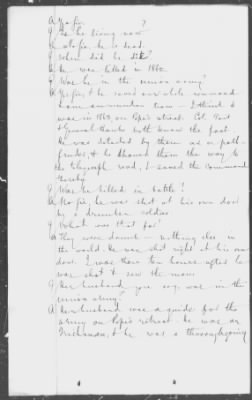 A Yes sir. 7
Q Is he living now
A No sir he is dead.
Q When did he die?
A He was killed in 1862.
Q Was he in the union army?
A Yes sir, & he saved our whole command
& our ammunition train – I think it
was in 1862, on Popes retreat. Col.
& General both know the fact.
He was detailed by them as a path-
finder, & he showed them the way to
the telegraph road, & saved the command
thereby
Q Was he killed in battle?
A No sir, he was shot at his own door
by a drunken soldier
Q What was that for?
A They were drunk – nothing else in
the world. He was shot right at his own
door. I was there two hours after he
was shot & saw the man
Q Her husband you say, was in the
union army.
A Her husband was a guide for the
army on Popes retreat. He was an
& he was a thoroughgoing